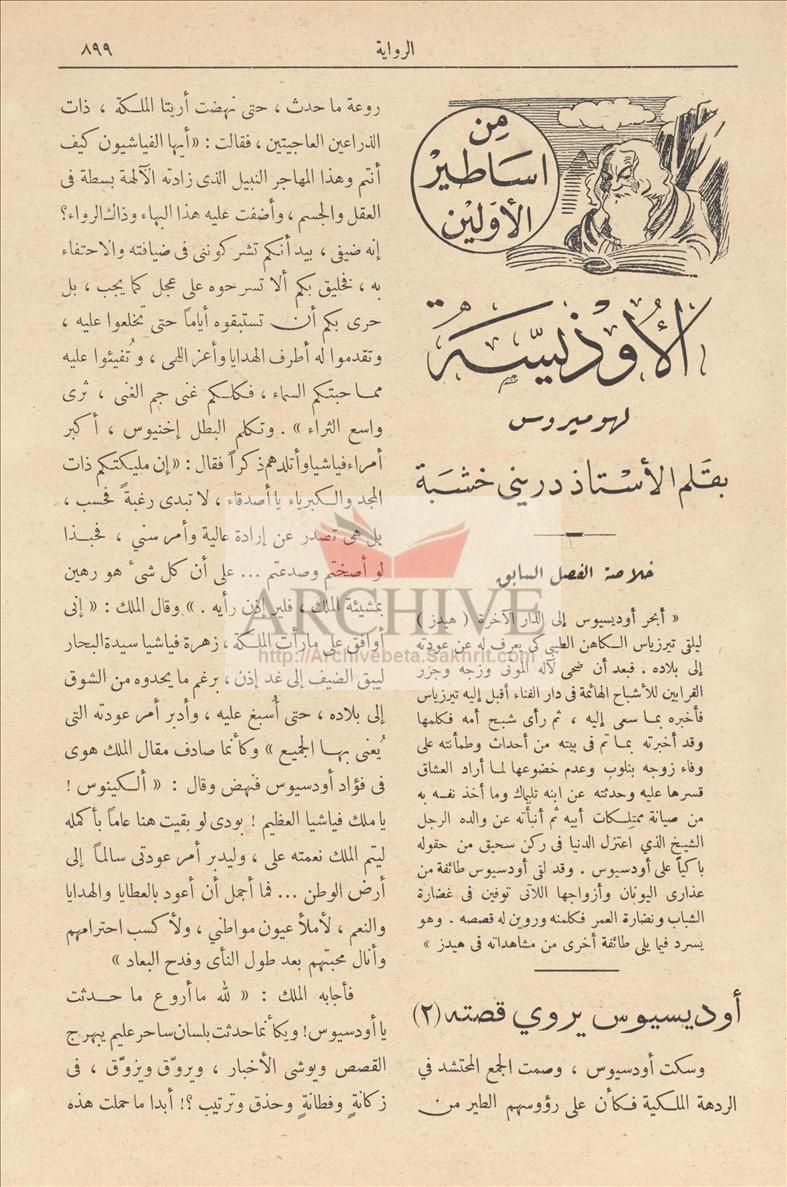 الرواية
٨٩٩
مِن
اساطير
الأولين
الأُوذيسَة
لهوميروس
بقلم الأستاذ دريني خشبة
خلاصة الفصل السابق
« أبحر أوديسيوس إلى الدار الآخرة ( هيدز )
ليلقى تيرزياس الكاهن الطيبي كي يعرف له عن عودته
إلى بلاده . فبعد أن ضحى لآله الموتى وزجه وجزر
القرابين للأشباح الهائمة فى دار الفناء أقبل إليه تيرزياس
فأخبره بما سعى إليه ، ثم رأى شبح أمه فكلمها
وقد أخبرته بما تم فى بيته من أحداث وطمأنته على
وفاء زوجه بنلوب وعدم خضوعها لما أراد العشاق
قسرها عليه وحدثته عن ابنه تليماك وما أخذ نفسه به
من صيانة ممتلكات أبيه ثم أنبأته عن والده الرجل
الشيخ الذي اعتزل الدنيا فى ركن سحيق من حقوله
باكياً على أودسيوس . وقد لقى أودسيوس طائفة من
عذارى اليونان وأزواجها اللاتى توفين فى غضارة
الشباب ونضارة العمر فكلمنه وروين له قصصه . وهو
يسرد فيما يلى طائفة أخرى من مشاهداته فى هيدز »
أوديسيوس يروي قصته (٢)
وسكت أودسيوس ، وصمت الجمع المحتشد في
الردهة الملكية فكأن على رؤوسهم الطير من
روعة ما حدث ، حتى نهضت أريتا الملكة ، ذات
الذراعين العاجيتين ، فقالت : « أيها الفياشيون كيف
أنتم وهذا المهاجر النبيل الذى زادته الآلهة بسطة فى
العقل والجسم ، وأضفت عليه هذا البهاء وذاك الرواء ؟
إنه ضيفى ، بيد أنكم تشركوننى فى ضيافته والاحتفاء
به ، فخليق بكم ألا تسرحوه على عجل كما يجب ، بل
حرى بكم أن تستبقوه أياماً حتى تخلعوا عليه ،
وتقدموا له أطرف الهدايا وأعز اللهى ، وتُفيئوا عليه
مما حبتكم السماء ، فكلكم غنى جم الغنى ، ثرى
واسع الثراء » . وتكلم البطل إخنيوس ، أكبر
أمراء فياشيا وأتلدهم ذكراً فقال : « إن مليكتكم ذات
المجد والكبرياء يا أصدقاء ، لا تبدى رغبةً فحسب ،
بل هى تصدر عن إرادة عالية وأمر سني ، فحبذا
لو أصختم وصدعتم ... على أن كل شئ هو رهين
بمشيئة الملك ، فلير إذن رأيه . » وقال الملك : « إنى
أوافق على ما رأت الملكة ، زهرة فياشيا سيدة البحار
ليبق الضيف إلى غد إذن ، برغم ما يحدوه من الشوق
إلى بلاده ، حتى أُسبغ عليه ، وأدبر أمر عودته التى
يُعنى بها الجميع » وكأنما صادف مقال الملك هوى
فى فؤاد أودسيوس فنهض وقال : « ألكينوس !
يا ملك فياشيا العظيم ! بودى لو بقيت هنا عاماً بأكمله
ليتم الملك نعمته على ، وليدبر أمر عودتى سالماً إلى
أرض الوطن ... فما أجمل أن أعود بالعطايا والهدايا
والنعم ، لأملأ عيون مواطني ، ولأكسب احترامهم
وأنال محبتهم بعد طول النأى وفدح البعاد »
فأجابه الملك : « لله ما أروع ما حدثت
يا أودسيوس ! ويكأنما حدثت بلسان ساحر عليم يبهرج
القصص ويوشى الأخبار ، ويروّق ويزوّق ، فى
زكانةٍ وفطانةٍ وحذق وترتيب ؟! أبدا ما حملت هذه
ARCHIVE
http://Archivebeta.Sakhrit.com